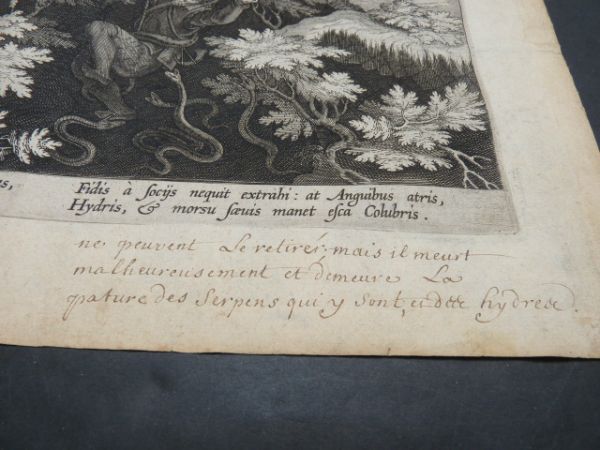 us,
Fidis à socijs nequit extrahi: at Anguibus atris,
Hydris, & morsu sævis manet esca Colubris.
ne peuvent Le retirér; mais il meurt
malheureusement et demeure La
pature des Serpens qui y Sont, et des hydres.